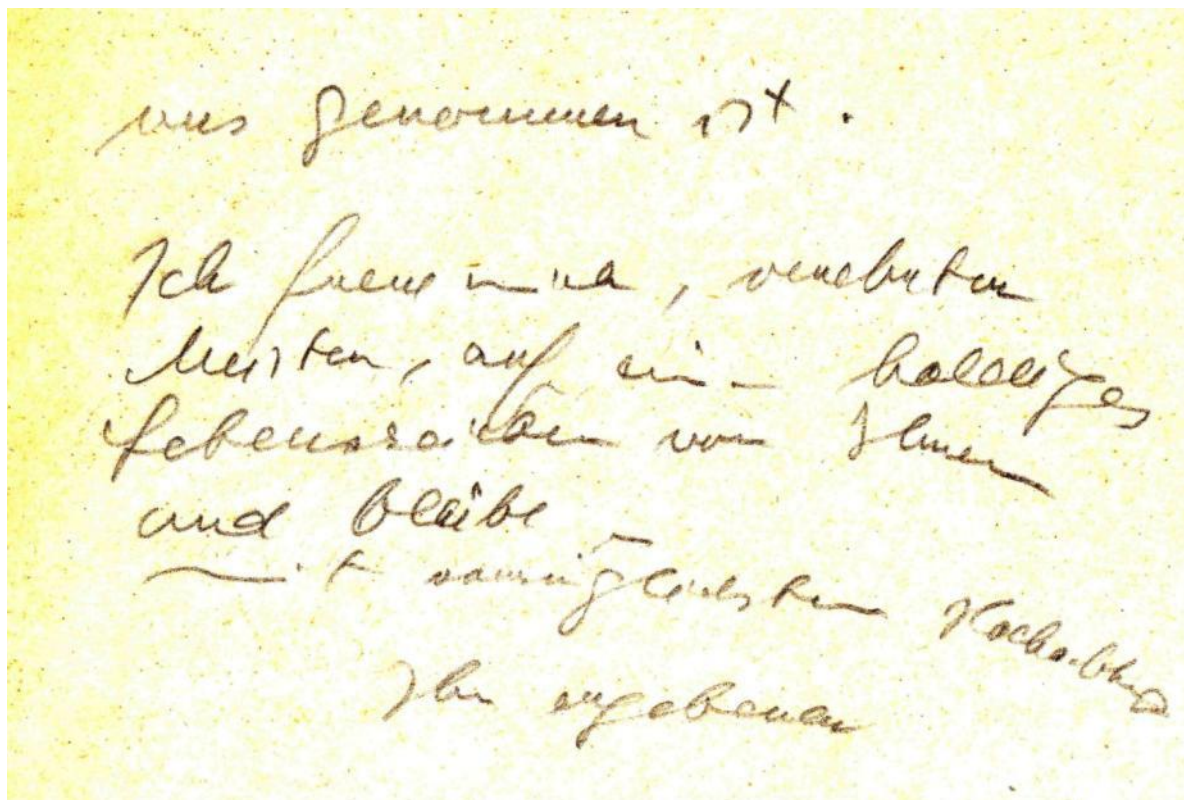 uns genommen ist.
Ich freue mich, verehrter
Meister, auf ein baldiges
Lebenszeichen von Ihnen
und bleibe
mit vorzüglichster Hochachtung
Ihr ergebener